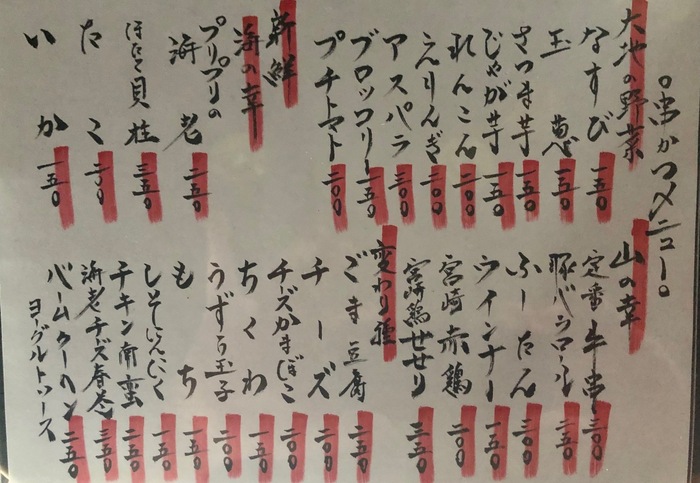 ○串かつメニュー○
大地の野菜
なすび 一五〇
玉葱 一五〇
さつま芋 一五〇
じゃが芋 一五〇
れんこん 二〇〇
えりんぎ 二〇〇
アスパラ 三〇〇
ブロッコリー 一五〇
プチトマト 二〇〇
新鮮
海の幸
プリプリの
海老 二五〇
ほたて貝柱 三五〇
たこ 二〇〇
いか 一五〇
山の幸
定番牛串 二〇〇
豚バラロール 二五〇
ふーたん 三〇〇
ウインナー 一五〇
宮崎赤鶏 二〇〇
宮崎鶏せせり 二五〇
変わり種
ごま豆腐 二五〇
チーズ 二〇〇
チーズかまぼこ 二〇〇
ちくわ 一五〇
うずら玉子 二〇〇
もち 一五〇
しそにんにく 一五〇
チキン南蛮 二五〇
海老チーズ春巻 二五〇
バームクーヘン 二五〇
ヨーグルトソース